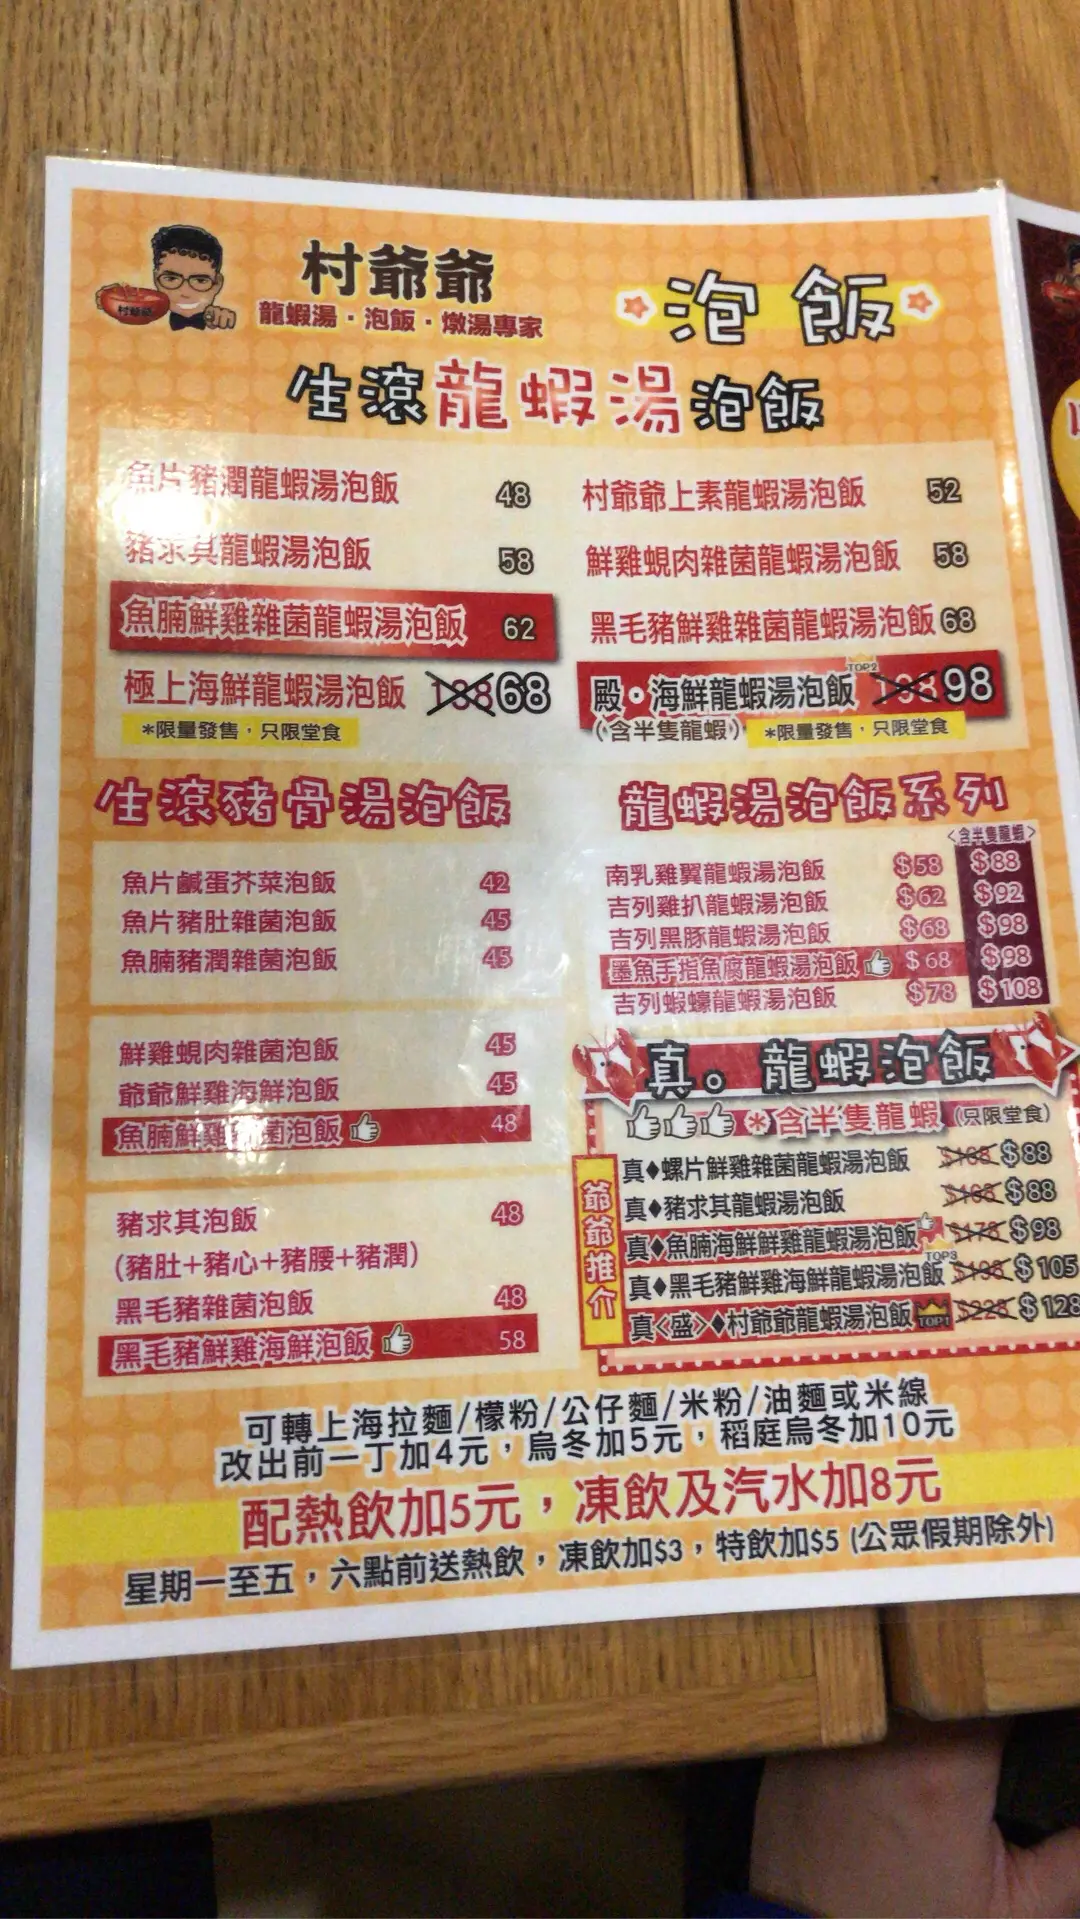 村爺爺
龍蝦湯・泡飯・燉湯專家
泡飯
生滾龍蝦湯泡飯
魚片豬潤龍蝦湯泡飯 48
豬求其龍蝦湯泡飯 58
魚腩鮮雞雜菌龍蝦湯泡飯 62
極上海鮮龍蝦湯泡飯 138 68
*限量發售，只限堂食
村爺爺上素龍蝦湯泡飯 52
鮮雞蜆肉雜菌龍蝦湯泡飯 58
黑毛豬鮮雞雜菌龍蝦湯泡飯 68
殿・海鮮龍蝦湯泡飯 TOP2 198 98
(含半隻龍蝦) *限量發售，只限堂食
生滾豬骨湯泡飯
魚片鹹蛋芥菜泡飯 42
魚片豬肚雜菌泡飯 45
魚腩豬潤雜菌泡飯 45
鮮雞蜆肉雜菌泡飯 45
爺爺鮮雞海鮮泡飯 45
魚腩鮮雞雜菌泡飯 48
豬求其泡飯 48
(豬肚+豬心+豬腰+豬潤)
黑毛豬雜菌泡飯 48
黑毛豬鮮雞海鮮泡飯 58
龍蝦湯泡飯系列
<含半隻龍蝦>
南乳雞翼龍蝦湯泡飯 $58 $88
吉列雞扒龍蝦湯泡飯 $62 $92
吉列黑豚龍蝦湯泡飯 $68 $98
墨魚手指魚腐龍蝦湯泡飯 $68 $98
吉列蝦蠔龍蝦湯泡飯 $78 $108
真。龍蝦泡飯
*含半隻龍蝦 (只限堂食)
爺爺推介
真◆螺片鮮雞雜菌龍蝦湯泡飯 $168 $88
真◆豬求其龍蝦湯泡飯 $168 $88
真◆魚腩海鮮鮮雞龍蝦湯泡飯 $178 $98
真◆黑毛豬鮮雞海鮮龍蝦湯泡飯 TOP3 $198 $105
真<盛>◆村爺爺龍蝦湯泡飯 TOP1 $228 $128
可轉上海拉麵/檬粉/公仔麵/米粉/油麵或米線
改出前一丁加4元，烏冬加5元，稻庭烏冬加10元
配熱飲加5元，凍飲及汽水加8元
星期一至五，六點前送熱飲，凍飲加$3，特飲加$5 (公眾假期除外)